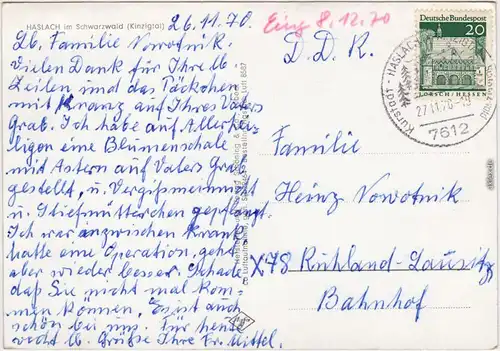 HASLACH im Schwarzwald (Kinzigtal)
26.11.70.
Eing 8.12.70
Lb. Familie Nowotnik.
Vielen Dank für Ihre lb.
Zeilen und das Päckchen
mit Kranz auf Ihres Vaters
Grab. Ich habe auf Allerhei-
ligen eine Blumenschale
mit Astern auf Vaters Grab
gestellt, u. Vergißmeinnicht
u. Stiefmütterchen gepflanzt.
Ich war inzwischen krank
hatte eine Operation, geht
aber wieder besser. Schade
daß Sie nicht mal kom-
men können, Es ist auch
schön bei uns. Für heute
recht lb. Grüße Ihre Fr. Mittel.
D.D.R.
Familie
Heinz Nowotnik
X78 Ruhland-Lausitz
Bahnhof
Deutsche Bundespost
20
LORSCH/HESSEN
Kurstadt · HASLACH
27.11.70
7612